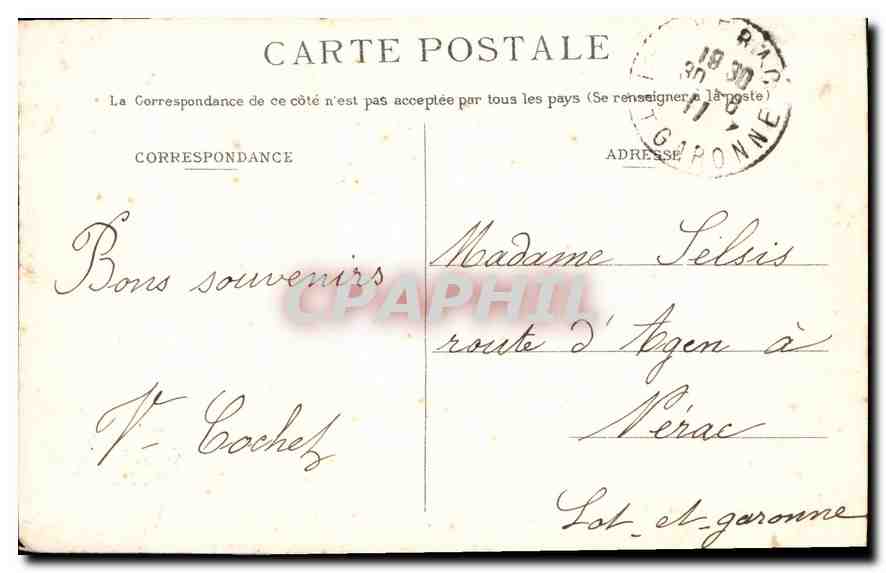 CARTE POSTALE
La Correspondance de ce côté n'est pas acceptée par tous les pays (Se renseigner à la poste)
CORRESPONDANCE
ADRESSE
GARONNE
18 30
30 - 6
11
Bons souvenirs
V- Cochet
Madame Selsis
route d'Agen à
Nérac
Lot-et-garonne
CPAPHIL